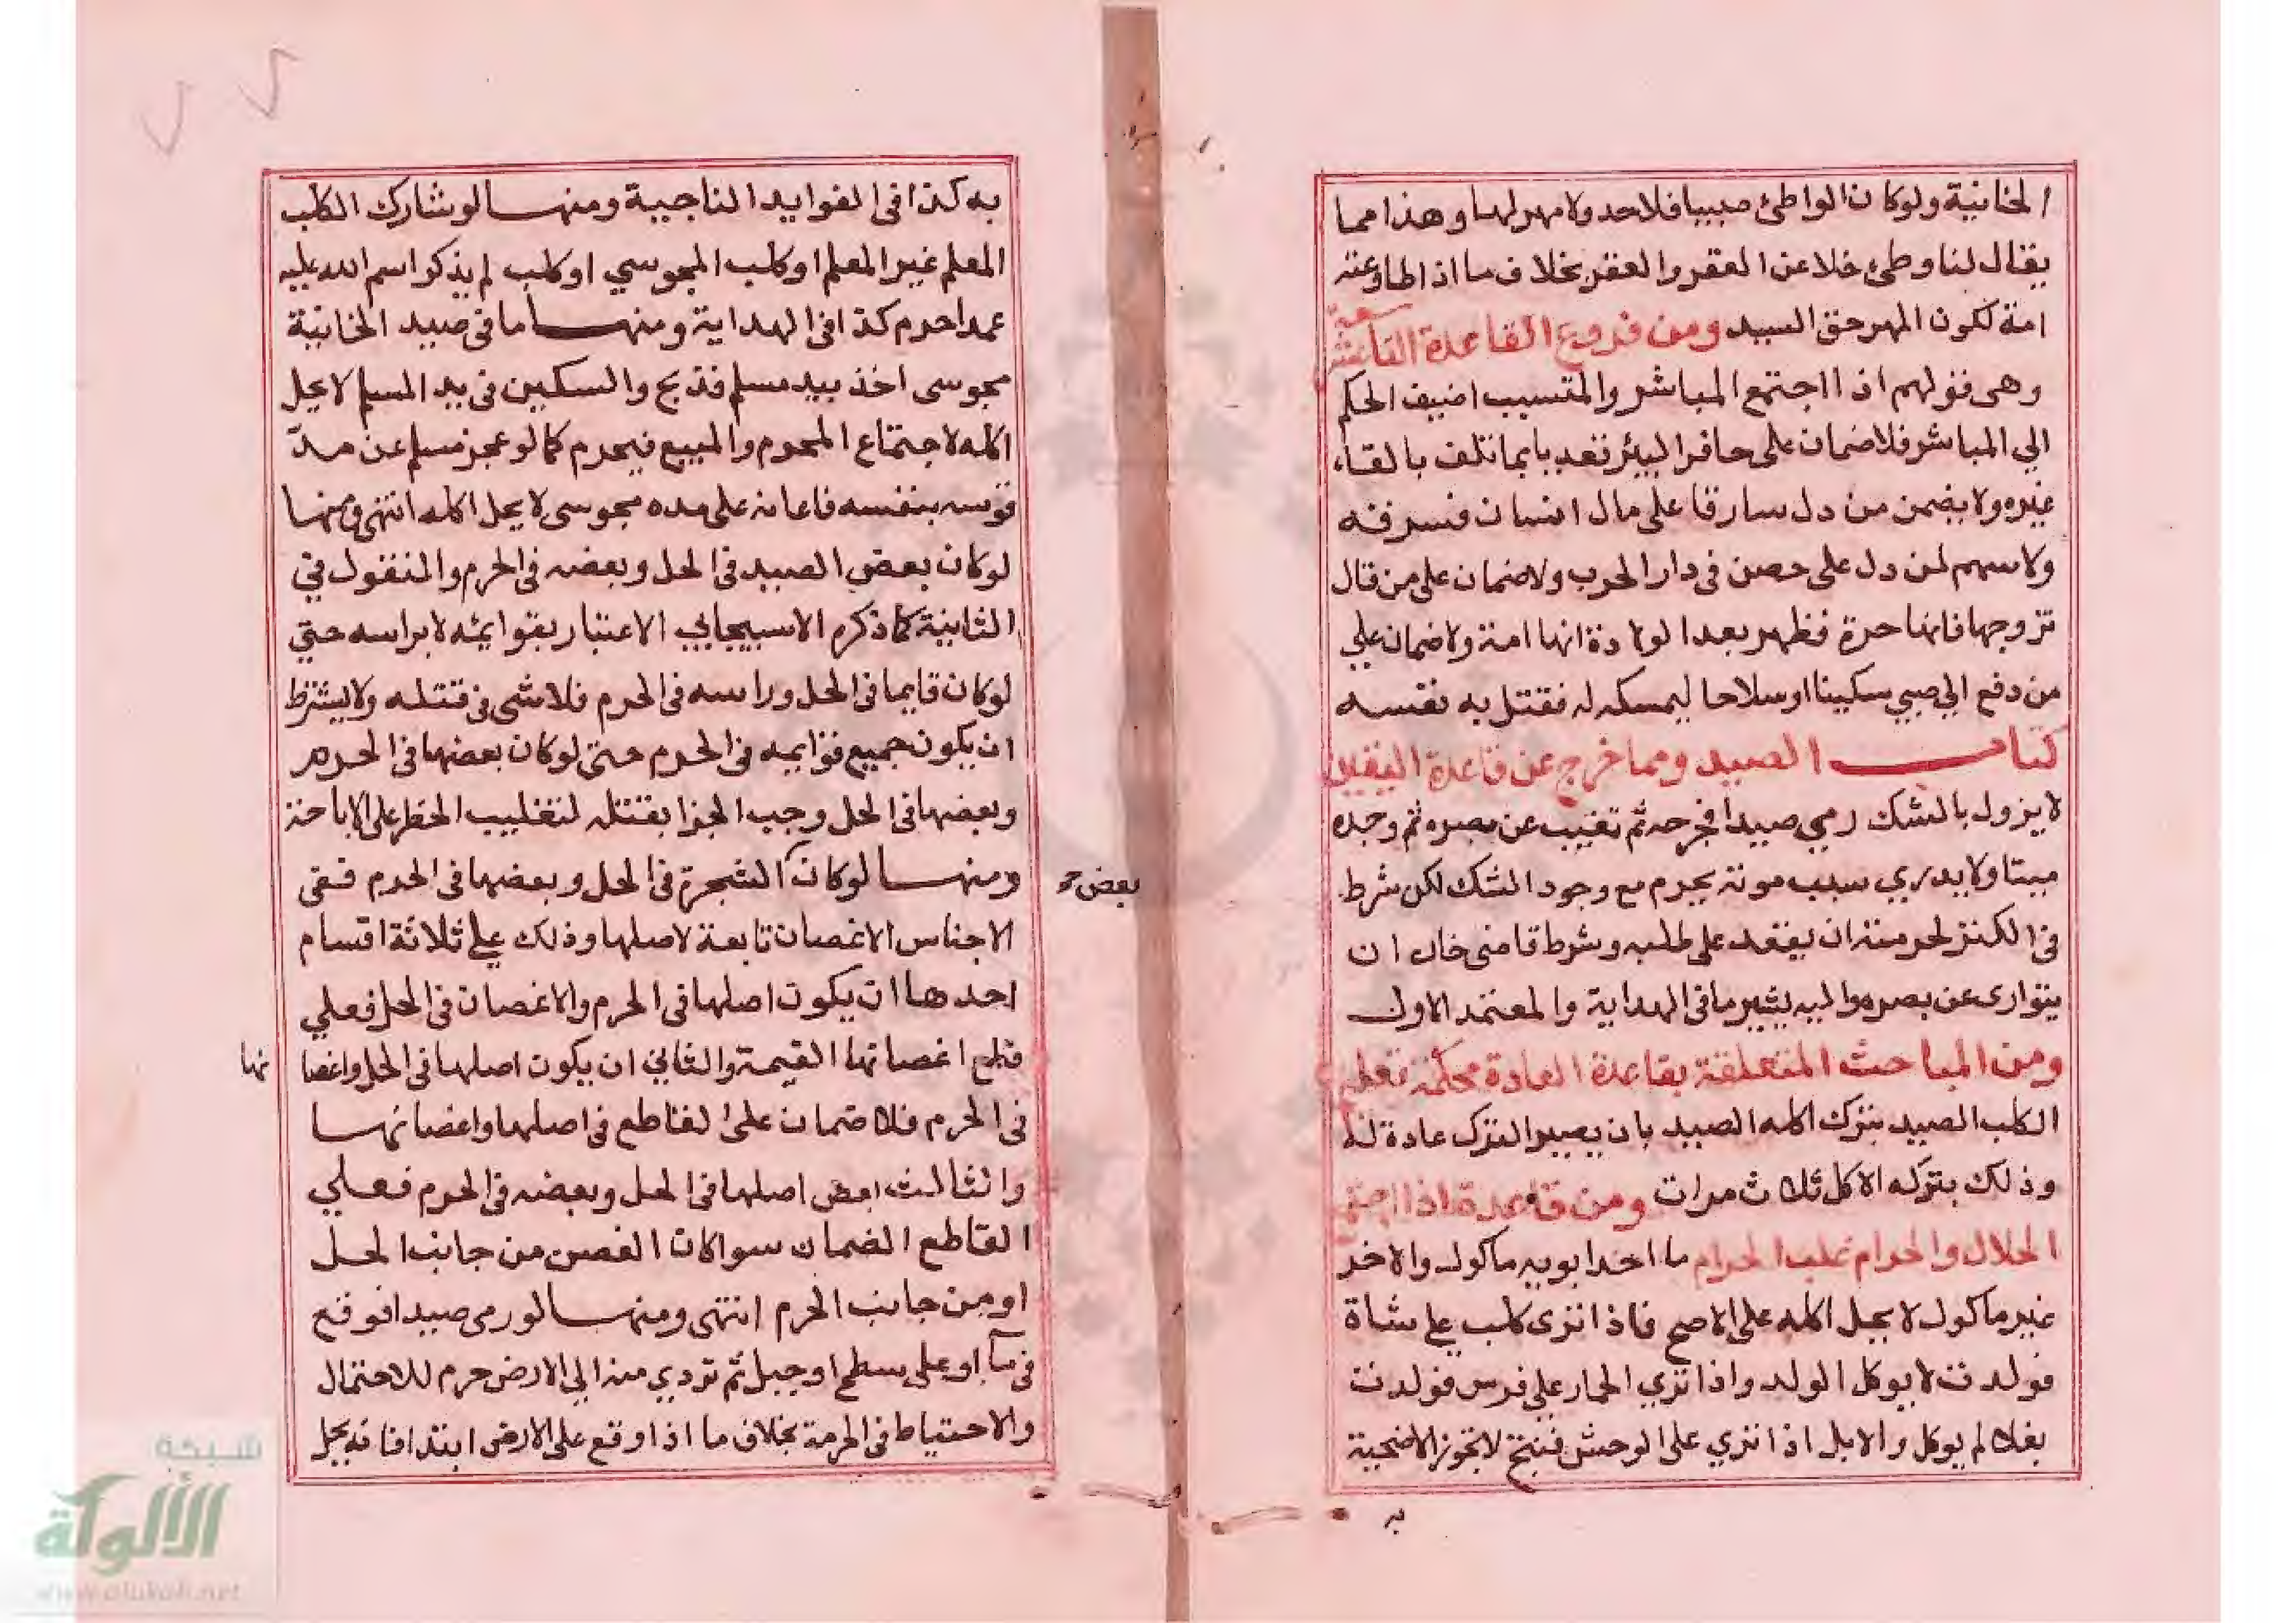 الخانية ولو كان الواطئ صبيا فلا حد ولا مهر لها وهذا مما
يقال لنا وطئ خلا عن العقر والعقر بخلاف ما اذا طاوعته
امة لكون المهر حق السيد ومن فروع القاعدة التاسعة عشر
وهى قولهم اذا اجتمع المباشر والمتسبب اضيف الحكم
الي المباشر فلا ضمان على حافر البير تعديا بما تلف بالقاء
غيره ولا يضمن من دل سارقا على مال انسان فسرقه
ولا سهم لمن دل على حصن فى دار الحرب ولا ضمان على من قال
تزوجها فانها حرة فظهر بعد الولادة انها امة ولا ضمان علي
من دفع الي صبي سكينا او سلاحا ليمسكه له فقتل به نفسه
كتاب الصيد ومما خرج عن قاعدة اليقين
لا يزول بالشك رمي صيدا فجرحه ثم تغيب عن بصره ثم وجده
ميتا ولا يدري سبب موته يحرم مع وجود الشك لكن شرط
فى الكنز لحرمته ان يقعد على طلبه وشرط قاضى خان ان
يتوارى عن بصره واليه يشير ما فى الهداية والمعتمد الاول
ومن المباحث المتعلقة بقاعدة العادة محكمة تعليم
الكلب الصيد بترك اكله الصيد بان يصير الترك عادة له
وذلك بتركه الاكل ثلاث مرات ومن قاعدة اذا اجتمع
الحلال والحرام غلب الحرام ما احد ابويه ماكول والاخر
غير ماكول لا يحل اكله على الاصح فاذا نزى كلب على شاة
فولدت لا يوكل الولد واذا نزي الحمار على فرس فولدت
بغلا لم يوكل والابل اذا نزي على الوحش فنتج لا تجوز الاضحية
به
به كذا فى الفوايد التاجية ومنها لو شارك الكلب
المعلم غير المعلم او كلب المجوسي او كلب لم يذكر اسم الله عليه
عمدا حرم كذا فى الهداية ومنها ما فى صيد الخانية
مجوسى اخذ بيد مسلم فذبح والسكين فى يد المسلم لا يحل
اكله لاجتماع المحرم والمبيح فيحرم كما لو عجز مسلم عن مد
قوسه بنفسه فاعانه على مده مجوسى لا يحل اكله انتهى ومنها
لو كان بعض الصيد فى الحل وبعضه فى الحرم والمنقول في
الثانية كما ذكره الاسبيجابي الاعتبار بقوايمه لا براسه حتي
لو كان قايما فى الحل وراسه فى الحرم فلا شى فى قتله ولا يشترط
ان يكون جميع قوايمه فى الحرم حتى لو كان بعضها فى الحرم
وبعضها فى الحل وجب الجزا بقتله لتغليب الحظر على الاباحة
ومنها لو كان الشجرة فى الحل وبعضها فى الحرم ففى
بعض
الاجناس الاغصان تابعة لاصلها وذلك على ثلاثة اقسام
احدها ان يكون اصلها فى الحرم والاغصان فى الحل فعلي
قطع اغصانها القيمة والثاني ان يكون اصلها فى الحل واغصا
نها
فى الحرم فلا ضمان على القاطع فى اصلها واغصانها
والثالث بعض اصلها فى الحل وبعضه فى الحرم فعلي
القاطع الضمان سوا كان الغصن من جانب الحل
او من جانب الحرم انتهى ومنها لو رمى صيدا فوقع
فى ماء او على سطح او جبل ثم تردي منه الي الارض حرم للاحتمال
والاحتياط فى الحرمة بخلاف ما اذا وقع على الارض ابتدا فانه يحل
شبكة
الألوكة
www.alukah.net